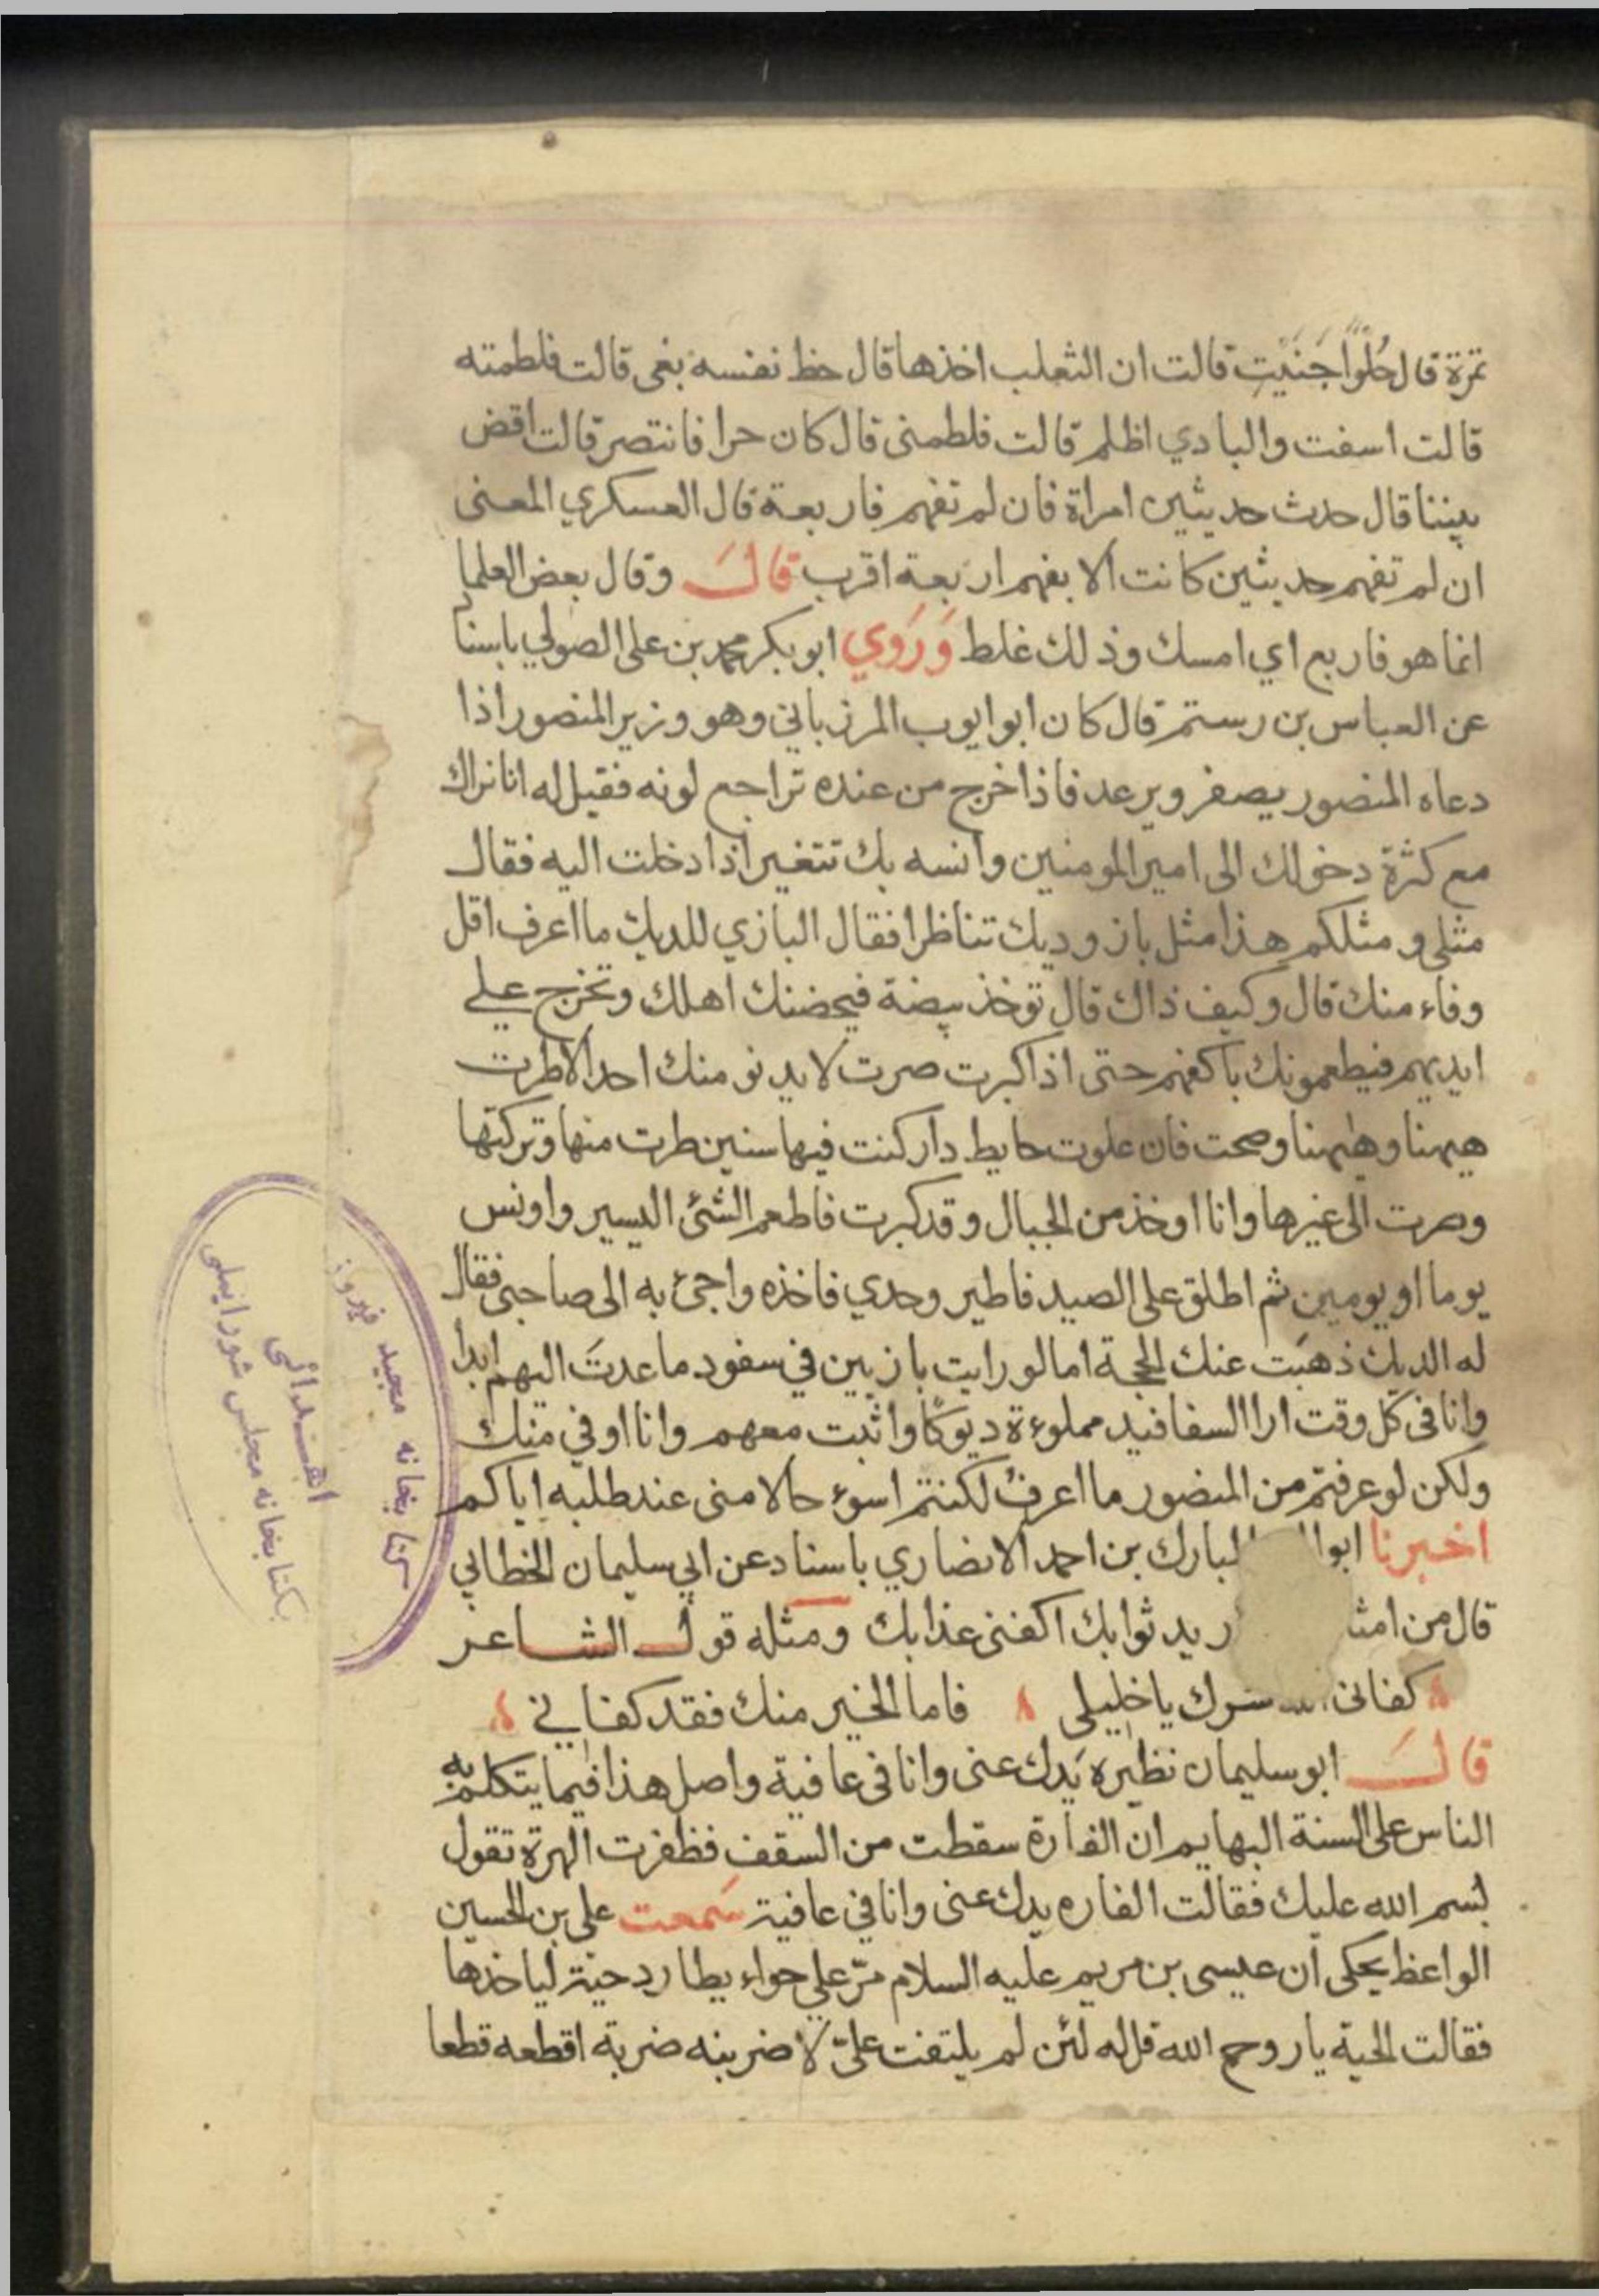 تمرة قال حُلْوًا جَنَيْتِ قالت ان الثعلب اخذها قال حظ نفسه بغى قالت فلطمته
قالت اسفت والبادي اظلم قالت فلطمنى قال كان حرا فانتصر قالت اقض
بيننا قال حدث حديثين امراة فان لم تفهم فاربعة قال العسكري المعنى
ان لم تفهم حديثين كانت الا بفهم اربعة اقرب قالَ وقال بعض العلما
انما هو فاربع اي امسك وذلك غلط وَرَوي ابو بكر محمد بن على الصولي باسناد
عن العباس بن رستم قال كان ابو ايوب المرزباني وهو وزير المنصور اذا
دعاه المنصور يصفر ويرعد فاذا خرج من عنده تراجع لونه فقيل له انا نراك
مع كثرة دخولك الى امير المومنين وانسه بك تتغير اذا دخلت اليه فقال
مثلى ومثلكم هذا مثل باز وديك تناظرا فقال البازي للديك ما اعرف اقل
وفاء منك قال وكيف ذاك قال توخذ بيضة فيحضنك اهلك وتخرج على
ايديهم فيطعمونك باكفهم حتى اذا كبرت صرت لا يدنو منك احد الا طرت
ههنا وههنا وصحت فان علوت حايط دار كنت فيها سنين طرت منها وتركتها
وصرت الى غيرها وانا اوخذ من الجبال وقد كبرت فاطعم الشئ اليسير واونس
يوما او يومين ثم اطلق على الصيد فاطير وحدي فاخذه واجئ به الى صاحبى فقال
له الديك ذهبَت عنك الحجة اما لو رايت بازيين في سفود ما عدتَ اليهم ابدا
وانا فى كل وقت ارا السفافيد مملوءة ديوكًا واثبت معهم وانا اوفي منك
ولكن لو عرفتم من المنصور ما اعرفُ لكنتم اسوء حالا منى عند طلبه اياكم
اخبرنا ابوا المبارك بن احمد الانصاري باسناد عن ابي سليمان الخطابي
قال من امثا ريد ثوابك اكفنى عذابك ومثله قول الشاعر
كفانى الله شرك يا خليلى فاما الخير منك فقد كفاني
قالَ ابو سليمان نظيره يَدك عنى وانا فى عافية واصل هذا فيما يتكلم به
الناس على السنة البهايم ان الفارة سقطت من السقف فظفرت الهرة تقول
بسم الله عليك فقالت الفاره يدك عنى وانا في عافية سَمعت على بن الحسين
الواعظ يحكى ان عيسى بن مريم عليه السلام مرّ على حواء يطارد حية لياخذها
فقالت الحية يا روح الله قل له لئن لم يلتفت علىّ لاضربنه ضربة اقطعه قطعا
كتابخانه مجيد فيروز
اهـدائى
بكتابخانه مجلس شوراىملى